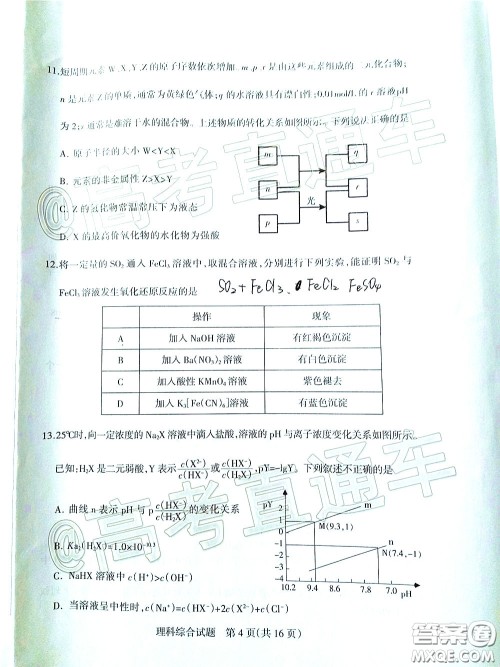 11.短周期元素W、X、Y、Z的原子序数依次增加。m、p、r是由这些元素组成的二元化合物;
n是元素Z的单质,通常为黄绿色气体;q的水溶液具有漂白性;0.01mol/L的r溶液pH
为2;s通常是难溶于水的混合物。上述物质的转化关系如图所示。下列说法正确的是
A. 原子半径的大小W<Y<X
B. 元素的非金属性Z>X>Y
C. Z的氢化物常温常压下为液态
D. X的最高价氧化物的水化物为强酸
m
n
p
光
q
r
s
12.将一定量的SO₂通入FeCl₃溶液中,取混合溶液,分别进行下列实验,能证明SO₂与
FeCl₃溶液发生氧化还原反应的是 SO₂+FeCl₃、FeCl₂ FeSO₄
操作 现象
A 加入NaOH溶液 有红褐色沉淀
B 加入Ba(NO₃)₂溶液 有白色沉淀
C 加入酸性KMnO₄溶液 紫色褪去
D 加入K₃[Fe(CN)₆]溶液 有蓝色沉淀
13.25℃时,向一定浓度的Na₂X溶液中滴入盐酸,溶液的pH与离子浓度变化关系如图所示。
已知:H₂X是二元弱酸,Y表示c(X²⁻)/c(HX⁻)或c(HX⁻)/c(H₂X),pY=-lgY。下列叙述不正确的是
A. 曲线n表示pH与p c(HX⁻)/c(H₂X)的变化关系
C. NaHX溶液中c(H⁺)>c(OH⁻)
D. 当溶液呈中性时,c(Na⁺)=c(HX⁻)+2c(X²⁻)+c(Cl⁻)
pY
2
1
0
-1
-2
m
M(9.3,1)
n
N(7.4,-1)
10.2 9.4 8.6 7.8 7.0
理科综合试题 第4页(共16页)
@高考直通车
@高考直通车
答案圈
MXQE.COM